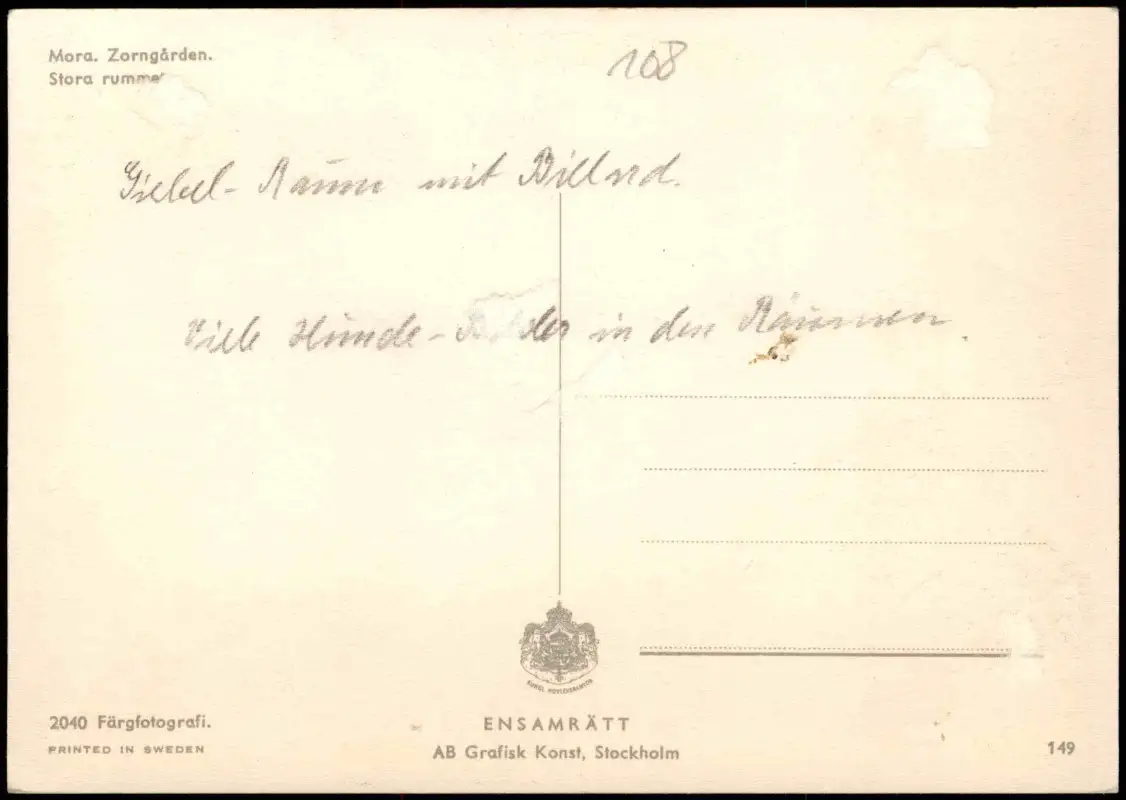 Mora. Zorngården.
Stora rummet
108
Giebel-Raum mit Billard.
Viele Hunde- in den Räumen.
KUNGL. HOVLEVERANTÖR
2040 Färgfotografi.
PRINTED IN SWEDEN
ENSAMRÄTT
AB Grafisk Konst, Stockholm
149